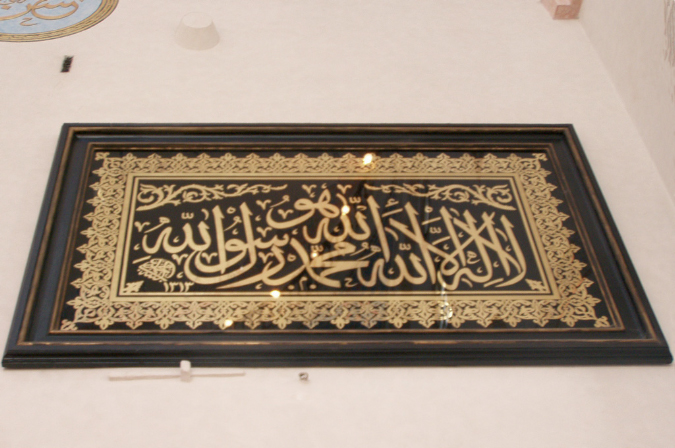 الله هو
لا اله الا الله محمد رسول الله
١٣١٣